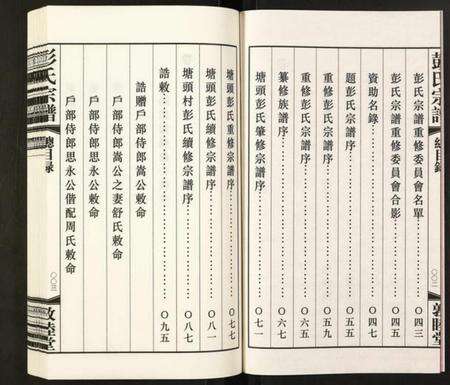 彭氏宗譜
總目錄
敦睦堂
彭氏宗譜重修委員會名單……〇四三
彭氏宗譜重修委員會合影……〇四五
資助名錄……〇四七
題彭氏宗譜序……〇五五
重修彭氏宗譜序……〇五九
重修彭氏宗譜序……〇六三
纂修族譜序……〇六七
塘頭彭氏肇修宗譜序……〇七一
塘頭彭氏重修宗譜序……〇七七
塘頭彭氏續修宗譜序……〇八一
塘頭村彭氏續修宗譜序……〇八七
誥敕……〇九五
誥贈戶部侍郎嵩公敕命
戶部侍郎嵩公之妻舒氏敕命
戶部侍郎思永公敕命
戶部侍郎思永公偕配周氏敕命
彭氏宗譜
總目錄
敦睦堂